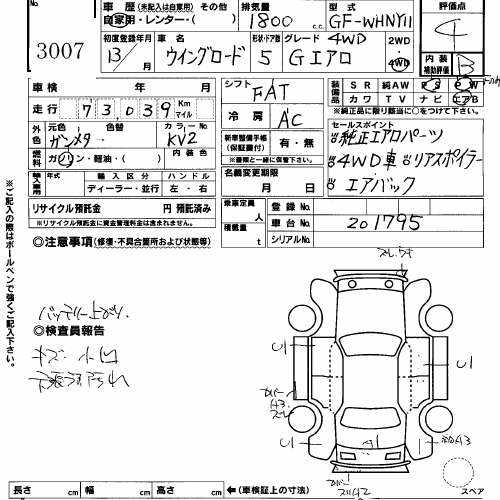 No. 車歴 (未記入は自家用) その他 排気量 型式 評価点
3007 自家用・レンター・( ) 1800 c.c. GF-WHNY11 4
初度登録年月 車名 形状・ドア数 グレード 4WD 2WD・4WD 内装補助評価
13/ 月 ウイングロード 5 Gエアロ B
車検 年 月 シフト FAT 装備品 SR 純AW PS PW
カワ TV ナビ エアB
走行 73,039 Km マイル 冷房 AC ※純正品に限り該当に○をつけて下さい。
外色 元色 色替 カラーNo. セールスポイント
ガンメタ KV2 新車整備手帳(保証書付) 有・無 純正エアロパーツ
燃料 ガソリン・軽油・( ) 内装色 ※書類と一緒に保管して下さい。 4WD車 リアスポイラー
輸入車用 年式 輸入区分 ハンドル 名義変更期限 エアバック
ディーラー・並行 左・右 月 日
リサイクル預託金 円 預託済み 乗車定員 人 登録No.
※リサイクル預託金に資金管理料金は含まれません。 積載量 t 車台No. 201795
◎注意事項 (修復・不具合箇所および状態等) シリアルNo.
※ご記入の際はボールペンで強くご記入下さい。
バッテリー上がり
◎検査員報告
キズ 小凹
A1
長さ cm 幅 cm 高さ cm ←(車検証上の寸法) スペア